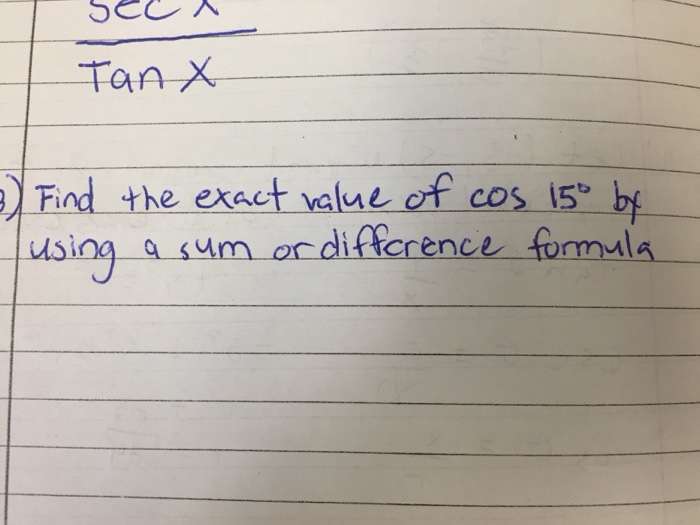 sec X
Tan X
3) Find the exact value of cos 15° by
using a sum or difference formula